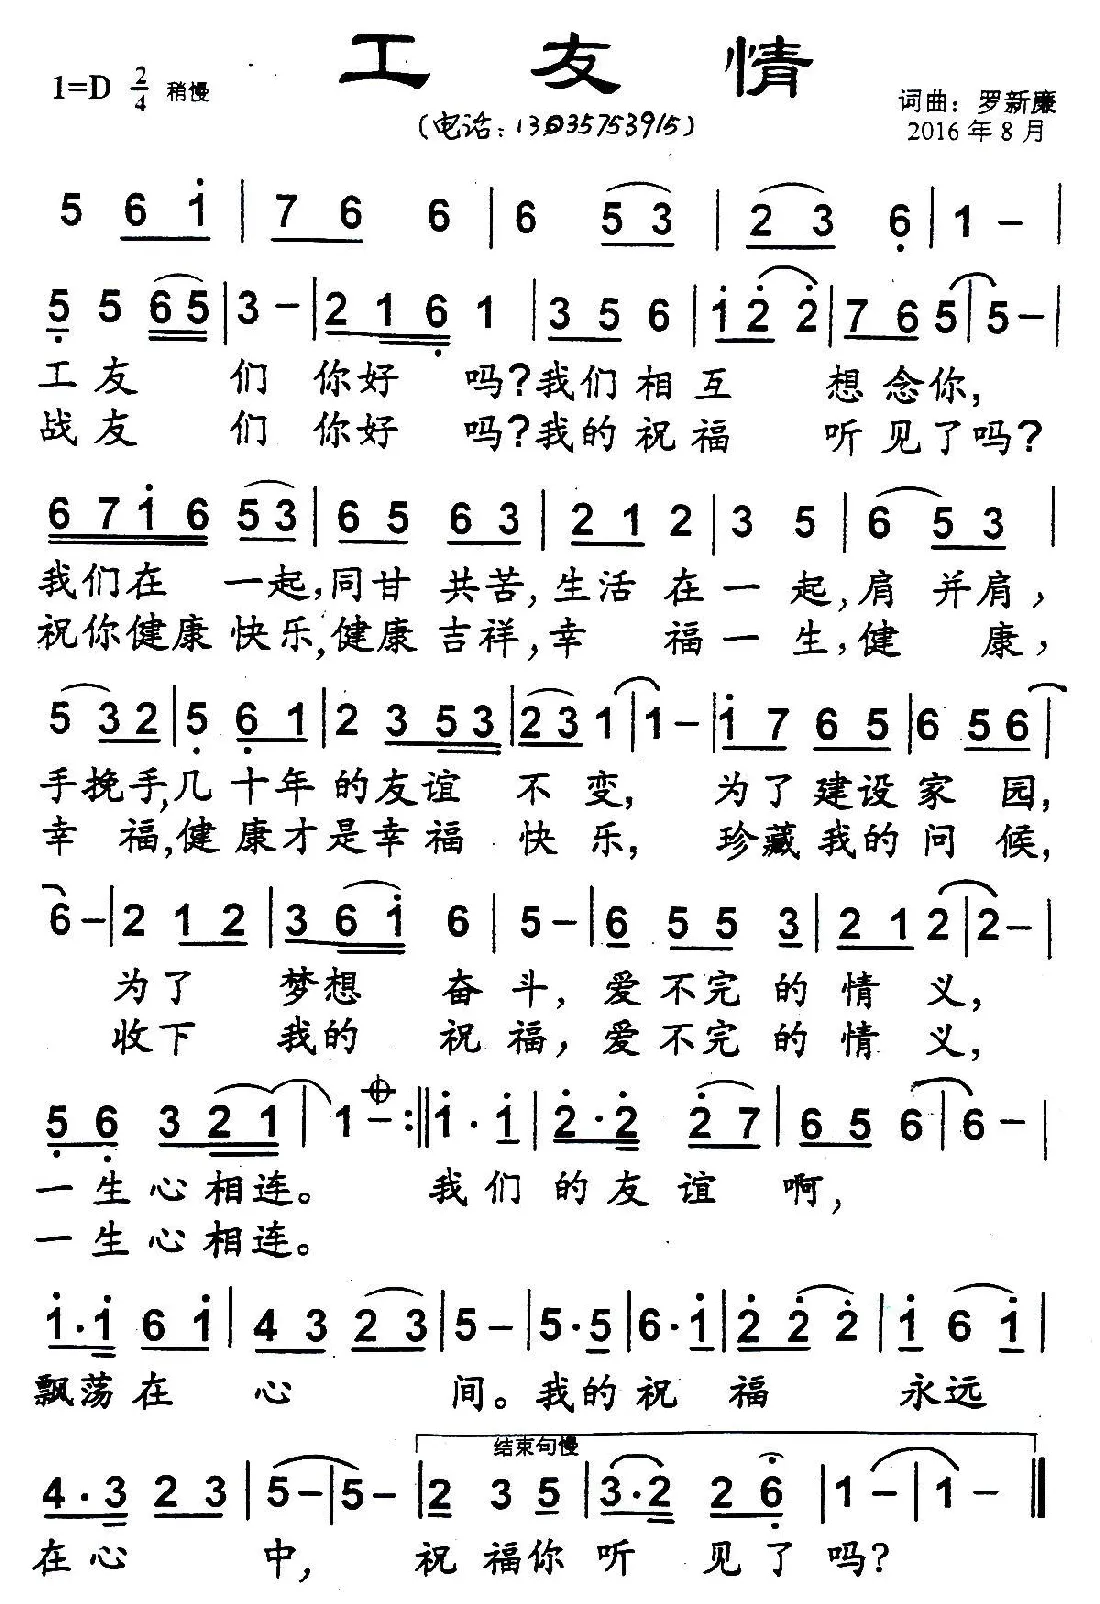 工友情
1=D 2/4 稍慢
(电话:13035753915)
词曲：罗新廉
2016年8月
5 6 1̇ | 7 6 6 | 6 5 3 | 2 3 6̣ | 1 – |
5̣ 5 6 5 | 3 – | 2 1 6̣ 1 | 3 5 6 | 1̇ 2̇ 2̇ | 7 6 5 | 5 – |
工友 们 你好 吗?我们相互 想念你,
战友 们 你好 吗?我的祝福 听见了吗?
6 7 1̇ 6 5 3 | 6 5 6 3 | 2 1 2 | 3 5 | 6 5 3 |
我们在 一起,同甘共苦,生活在一起,肩并肩,
祝你健康快乐,健康吉祥,幸 福一生,健 康,
5 3 2 | 5̣ 6̣ 1 | 2 3 5 3 | 2 3 1 | 1 – | 1̇ 7 6 5 | 6 5 6 |
手挽手,几十年的友谊 不变, 为了建设家园,
幸 福,健康才是幸福 快乐, 珍藏我的问候,
6 – | 2 1 2 | 3 6 1̇ 6 | 5 – | 6 5 5 3 | 2 1 2 | 2 – |
为了 梦想 奋斗,爱不完的情义,
收下 我的 祝福,爱不完的情义,
5̣ 6̣ 3 2 1 | 1 – :‖ 1̇ · 1̇ | 2̇ · 2̇ 2̇ 7 | 6 5 6 | 6 – |
一生心相连。 我们的友谊 啊,
一生心相连。
1̇ · 1̇ 6 1̇ | 4 3 2 3 | 5 – | 5 · 5 | 6 · 1̇ | 2̇ 2̇ 2̇ | 1̇ 6 1̇ |
飘荡在 心 间。我的祝 福 永远
结束句慢
4 · 3 2 3 | 5 – | 5 – | 2 3 5 | 3 · 2 2 6̣ | 1 – | 1 – ‖
在心 中, 祝福你听 见了吗?